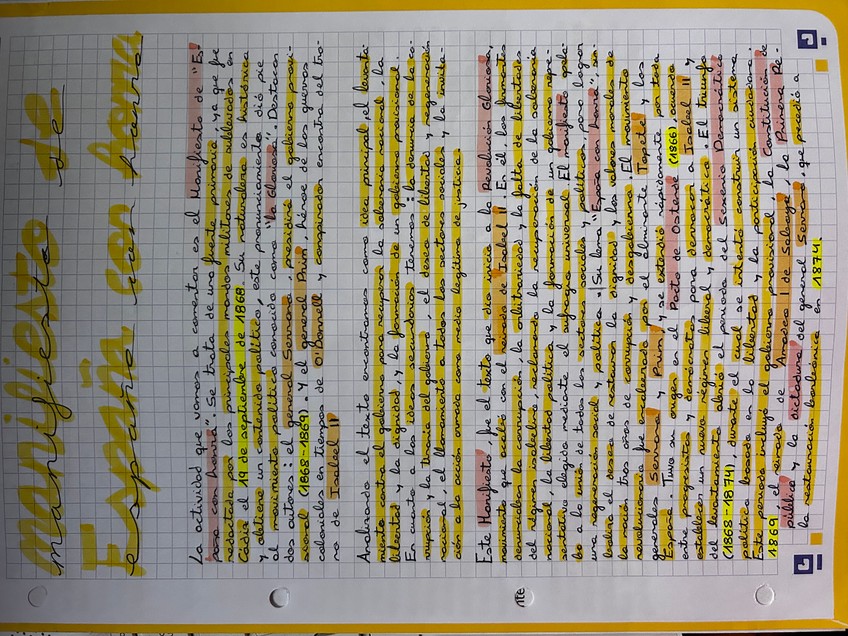 manifiesto de
España con honra
La actividad que vamos a comentar es el Manifiesto de "Es-
paña con honra". Se trata de una fuente primaria, ya que fue
redactada por los principales mandos militares de sublevados en
Cádiz el 19 de septiembre de 1868. Su naturaleza es histórica
y obtiene un contenido político, este pronunciamiento dió pie
al movimiento político conocido como "la Gloriosa". Destacan
dos autores: el general Serrano, presidirá el gobierno provi-
sional (1868-1869). Y el general Prim, héroe de las guerras
coloniales en tiempos de O'Donnell y conspirador encontra del tro-
no de Isabel II
Analizando el texto encontramos como idea principal, el levanta-
miento contra el gobierno para recuperar la soberanía nacional, la
libertad y la dignidad, y la formación de un gobierno provisional.
En cuanto a las ideas secundarias tenemos: la denuncia de la co-
rrupción y la tiranía del gobierno, el deseo de libertad y regeneración
nacional, el llamamiento a todos los sectores sociales y la invita-
ción a la acción armada como medio legítimo de justicia.
Este Manifiesto, fue el texto que dio inicio a la Revolución Gloriosa,
movimiento que acabó con el reinado de Isabel II. En él, los firmantes
denunciaban la corrupción, la arbitrariedad y la falta de libertades
del régimen isabelino, reclamando la recuperación de la soberanía
nacional, la libertad política y la formación de un gobierno repre-
sentativo elegido mediante el sufragio universal. El manifiesto apela-
ba a la unión de todos los sectores sociales y políticos, para lograr
una regeneración social y política. Su lema "España con honra", sim-
boliza el deseo de restaurar la dignidad y los valores morales de
la nación tras años de corrupción y desgobierno. El movimiento
revolucionario fue encabezado por el almirante Topete y los
generales Serrano y Prim, y se extendió rápidamente por toda
España. Tuvo su origen en el Pacto de Ostende (1866), acuerdo
entre progresistas y demócratas para derrocar a Isabel II y
establecer un nuevo régimen liberal y democrático. El triunfo
del levantamiento abrió el periodo del Sexenio Democrático
(1868-1874), durante el cual se intentó construir un sistema
político basado en la libertad y la participación ciudadana.
Este periodo incluyó el gobierno provisional, la Constitución de
1869, el reinado de Amadeo I de Saboya, la Primera Re-
pública y la dictadura del general Serrano, que precedió a
la restauración borbónica en 1874.